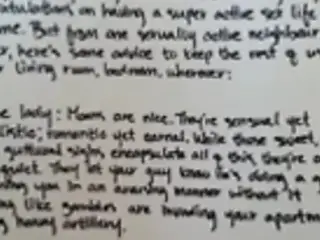 on having a super active sex life
me. But from one sexually active neighbour
r, here's some advice to keep the rest of us
r living room, bedroom, wherever:
e lady: Moans are nice. They're sensual yet
listic; romantic yet carnal. While those sweet,
guttural sighs, encapsulate all of this, they're a
quiet. They let your guy know he's doing a g
you in an manner without it
ng like zombies are invading your apartm
heavy artillery.